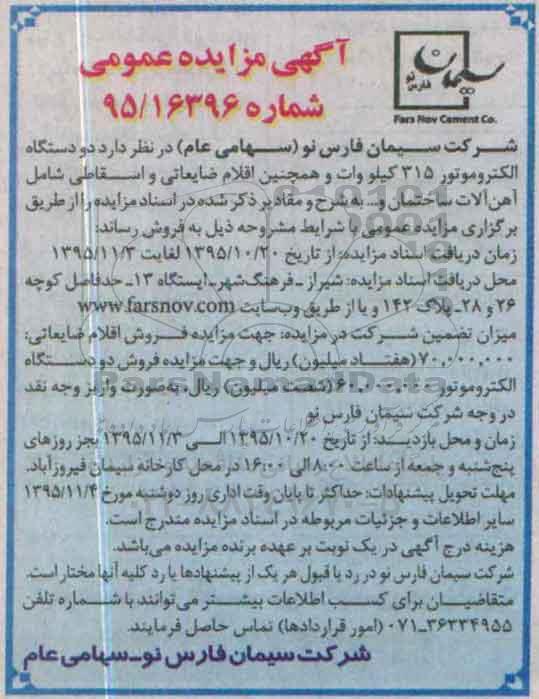 سیمان
فارس نو
Fars Nov Cement Co.
آگهی مزایده عمومی
شماره ۹۵/۱۶۳۹۶
شرکت سیمان فارس نو (سهامی عام) در نظر دارد دو دستگاه
الکتروموتور ۳۱۵ کیلو وات و همچنین اقلام ضایعاتی و اسقاطی شامل
آهن‌آلات ساختمان و... به شرح و مقادیر ذکر شده در اسناد مزایده را از طریق
برگزاری مزایده عمومی با شرایط مشروحه ذیل به فروش رساند:
زمان دریافت اسناد مزایده: از تاریخ ۱۳۹۵/۱۰/۲۰ لغایت ۱۳۹۵/۱۱/۳
محل دریافت اسناد مزایده: شیراز ـ فرهنگ‌شهر ـ ایستگاه ۱۳ ـ حدفاصل کوچه
۲۶ و ۲۸ ـ پلاک ۱۴۲ و یا از طریق وب‌سایت www.farsnov.com
میزان تضمین شرکت در مزایده: جهت مزایده فروش اقلام ضایعاتی:
۷۰,۰۰۰,۰۰۰ (هفتاد میلیون) ریال و جهت مزایده فروش دو دستگاه
الکتروموتور ۶۰,۰۰۰,۰۰۰ (شصت میلیون) ریال، به‌صورت واریز وجه نقد
در وجه شرکت سیمان فارس نو
زمان و محل بازدید: از تاریخ ۱۳۹۵/۱۰/۲۰ الی ۱۳۹۵/۱۱/۳ بجز روزهای
پنج‌شنبه و جمعه از ساعت ۸:۰۰ الی ۱۶:۰۰ در محل کارخانه سیمان فیروزآباد.
مهلت تحویل پیشنهادات: حداکثر تا پایان وقت اداری روز دوشنبه مورخ ۱۳۹۵/۱۱/۴
سایر اطلاعات و جزئیات مربوطه در اسناد مزایده مندرج است.
هزینه درج آگهی در یک نوبت بر عهده برنده مزایده می‌باشد.
شرکت سیمان فارس نو در رد یا قبول هر یک از پیشنهادها یا رد کلیه آنها مختار است.
متقاضیان برای کسب اطلاعات بیشتر می‌توانند با شماره تلفن
۰۷۱-۳۶۲۳۴۹۵۵ (امور قراردادها) تماس حاصل فرمایند.
شرکت سیمان فارس نو-سهامی عام
ParsNamadData